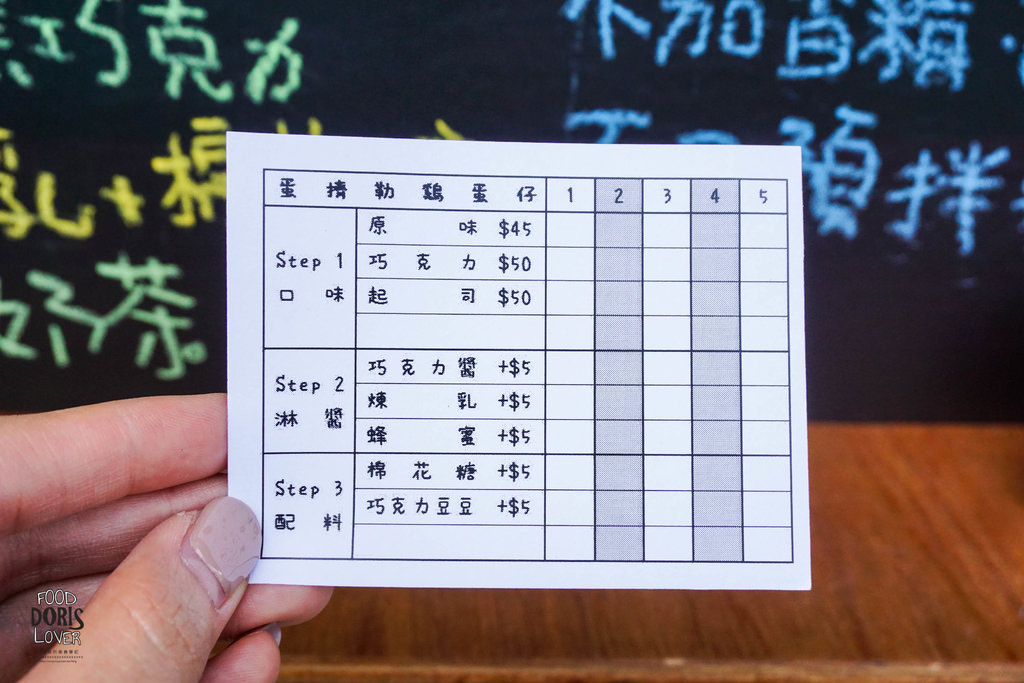 巧克力
不加香精
乳+棉
不
預拌
奶茶。
蛋擠勒鷄蛋仔 1 2 3 4 5
Step 1
口味
原味 $45
巧克力 $50
起司 $50
Step 2
淋醬
巧克力醬 +$5
煉乳 +$5
蜂蜜 +$5
Step 3
配料
棉花糖 +$5
巧克力豆豆 +$5
FOOD
DORIS
LOVER